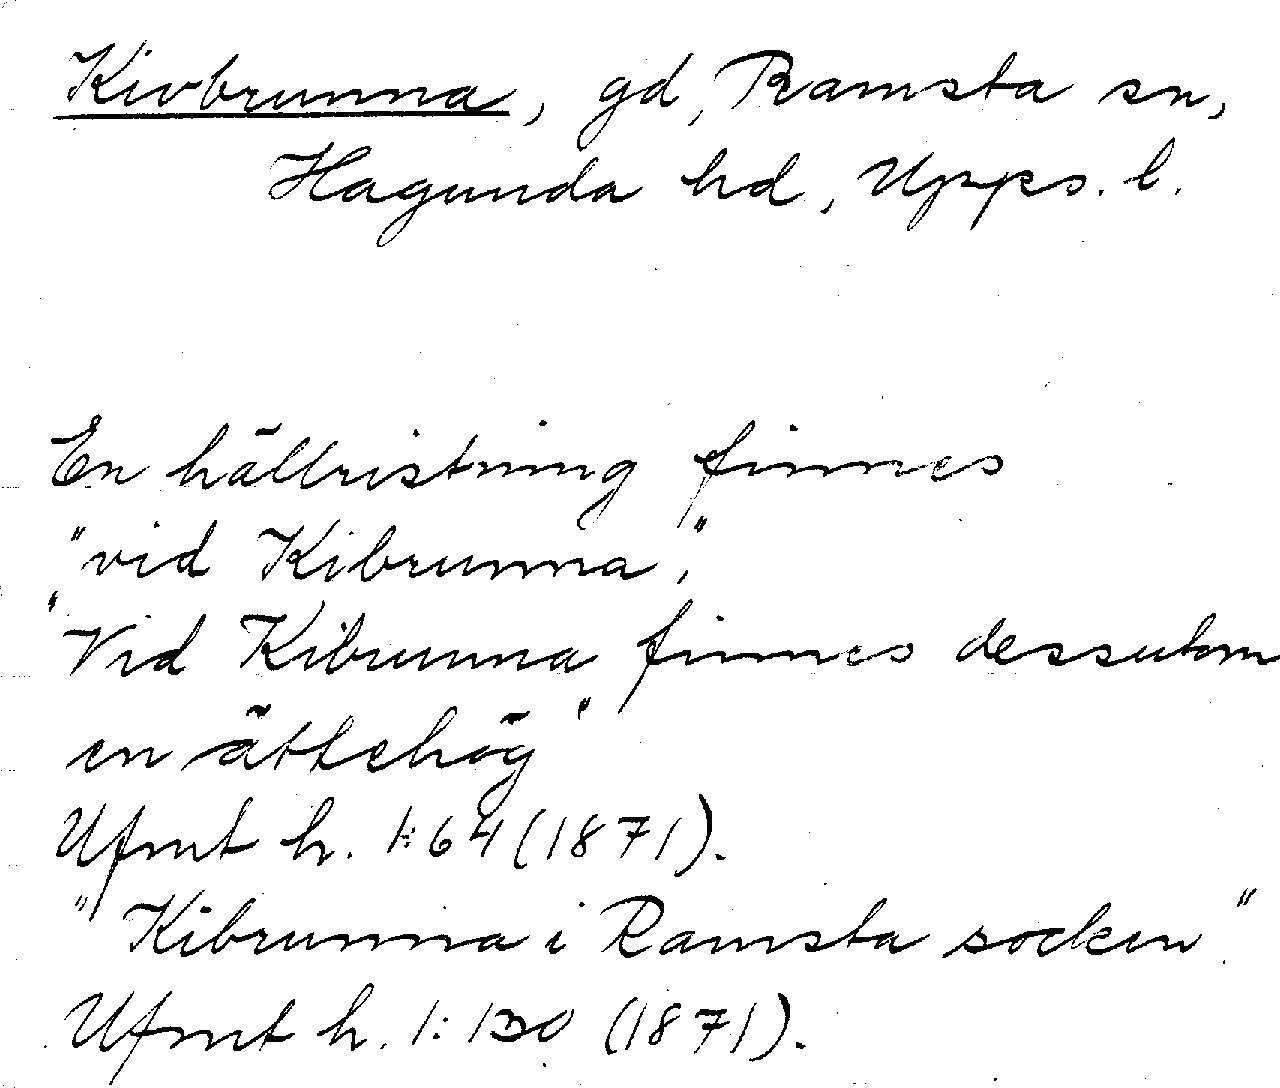 Kivbrunna, gd, Ramsta sn,
Hagunda hd, Upps. l.
En hällristning finnes
"vid Kibrunna,"
"Vid Kibrunna finnes dessutom
en ättehög"
Ufmt h. 1:64 (1871).
"Kibrunna i Ramsta socken."
Ufmt h. 1: (1871).